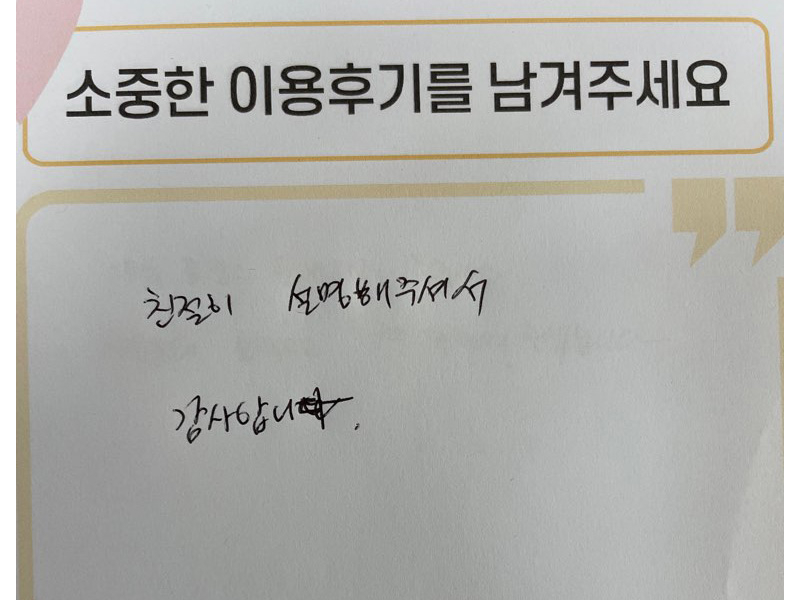 소중한 이용후기를 남겨주세요
친절히 설명해주셔서
감사합니다.